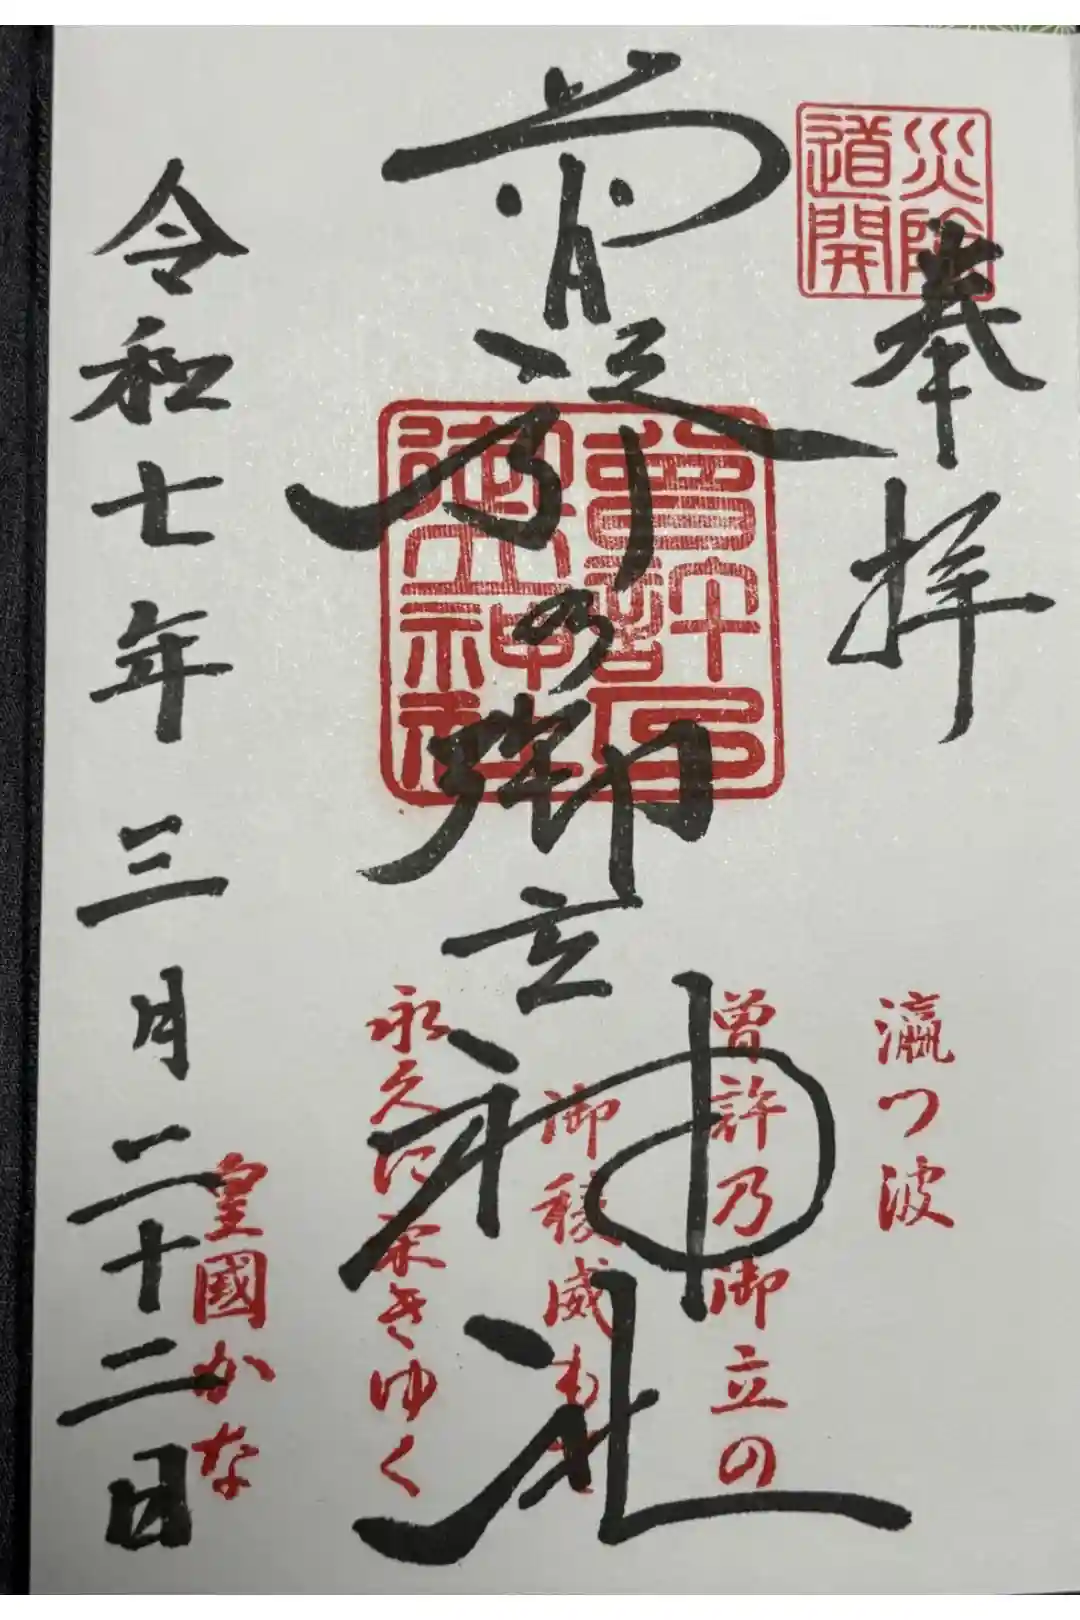 災除
道開
奉拝
曽許乃御立神社
曾許乃
御立神社
瀛つ波
曽許乃御立の
御稜威も
永久に栄えゆく
皇國かな
令和七年三月二十二日